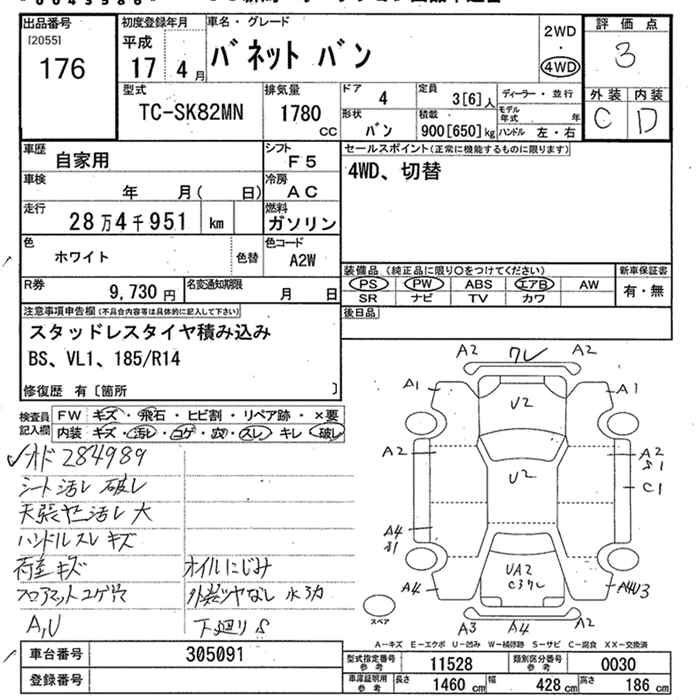 出品番号
[2055]
176
初度登録年月
平成
17年 4月
車名・グレード
バネット バン
2WD
・
4WD
評価点
3
外装 内装
C D
型式
TC-SK82MN
排気量
1780
CC
ドア
4
定員
3[6]人
ディーラー・並行
形状
バン
積載
900[650]kg
モデル年式 年
ハンドル 左・右
車歴
自家用
シフト
F5
セールスポイント(正常に機能するものに限ります)
4WD、切替
車検
年 月( 日)
冷房
AC
走行
28万4千951 km
燃料
ガソリン
色
ホワイト
色替
色コード
A2W
装備品(純正品に限り○をつけてください)
新車保証書
PS PW ABS エアB AW
SR ナビ TV カワ
有・無
R券
9,730円
名変通知期限
月 日
後日品
注意事項申告欄(不具合内容等は具体的に記入して下さい)
スタッドレスタイヤ積み込み
BS、VL1、185/R14
修復歴 有〔箇所 〕
検査員記入欄
FW キズ・飛石・ヒビ割・リペア跡・×要
内装 キズ・汚レ・コゲ・穴・スレ・キレ・破レ
284989
シート汚レ 破レ
天張ヤニ汚レ 大
ハンドルスレ キズ
荷室キズ
オイルにじみ
フロアマットコゲ穴
外装ツヤなし 水アカ
A,U
下廻りS
A2 ワレ A2
A1 U2 A1
A2 U2 A2
S1
C1
A4
S1
A4
UA2
C3ワレ
A4U3
A3 A4 A2
スペア
A-キズ E-エクボ U-凹み W-補修跡 S-サビ C-腐食 XX-交換済
車台番号
305091
登録番号
型式指定番号
参考
11528
類別区分番号
参考
0030
車庫証明用
参考
長さ 1460 cm
幅 428 cm
高さ 186 cm